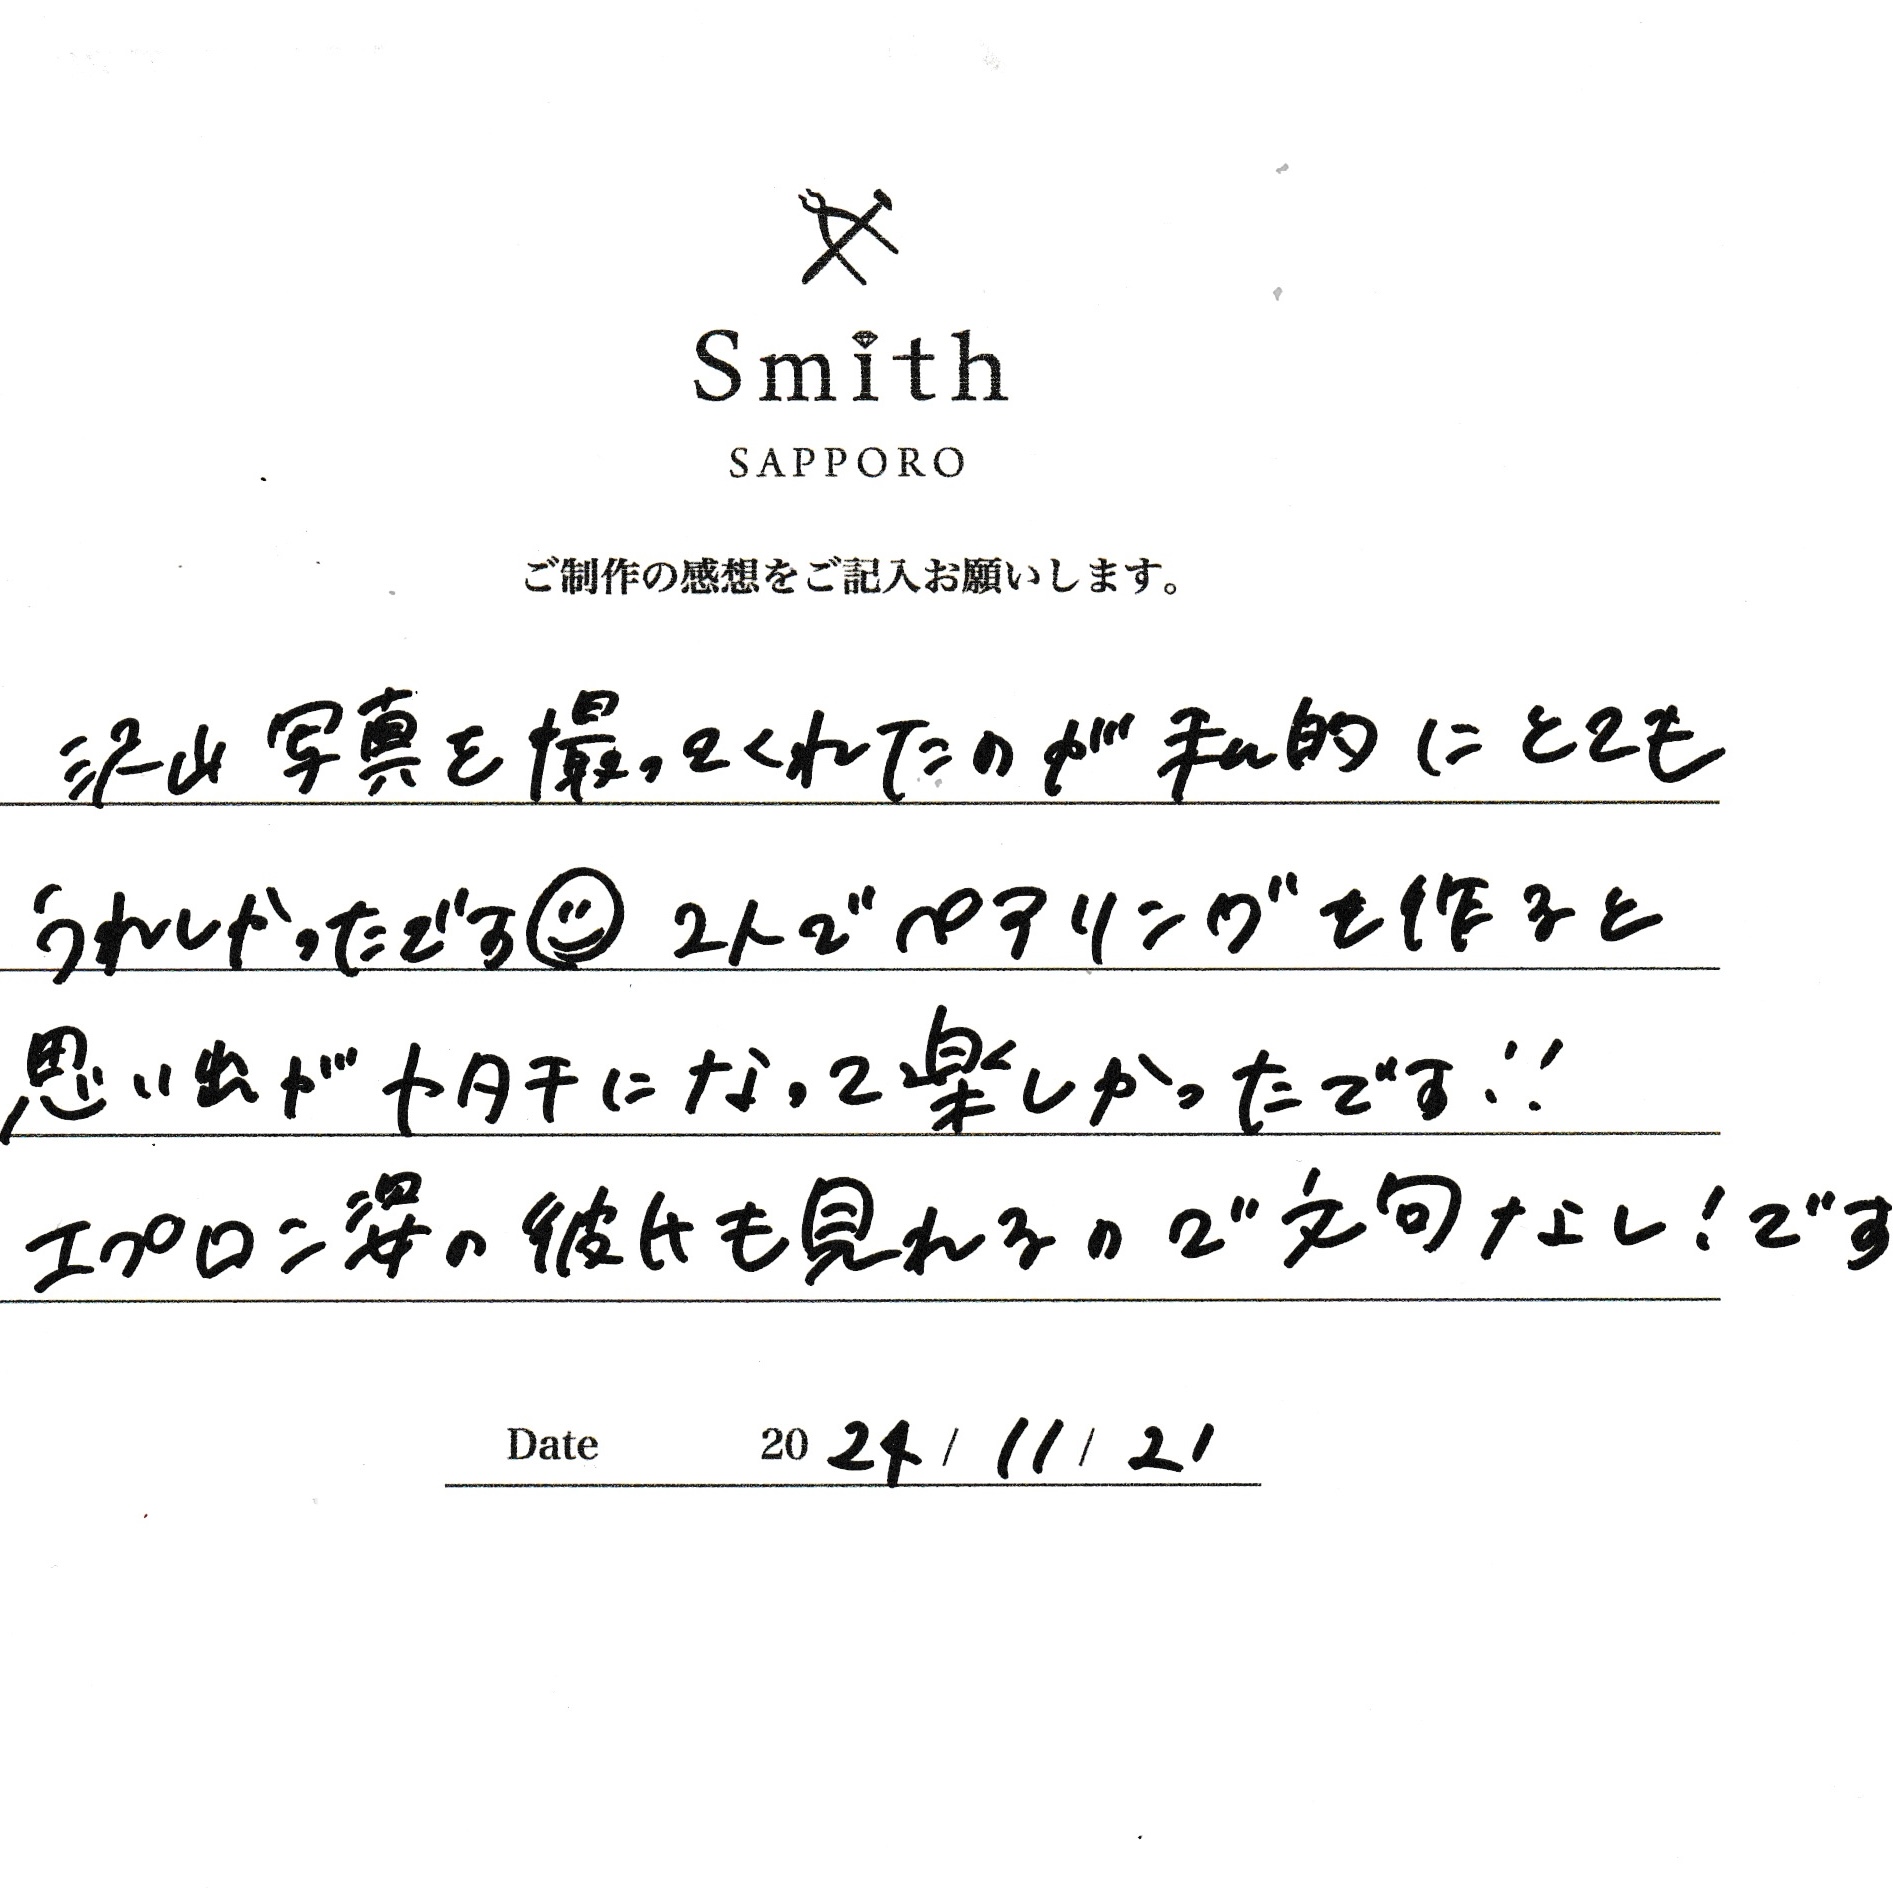 Smith
SAPPORO
ご制作の感想をご記入お願いします。
沢山写真を撮ってくれたのが私的にとても
うれしかったです 2人でペアリングを作ると
思い出がカタチになって楽しかったです!!
エプロン姿の彼氏も見れるので文句なし!です
Date 2024/11/21